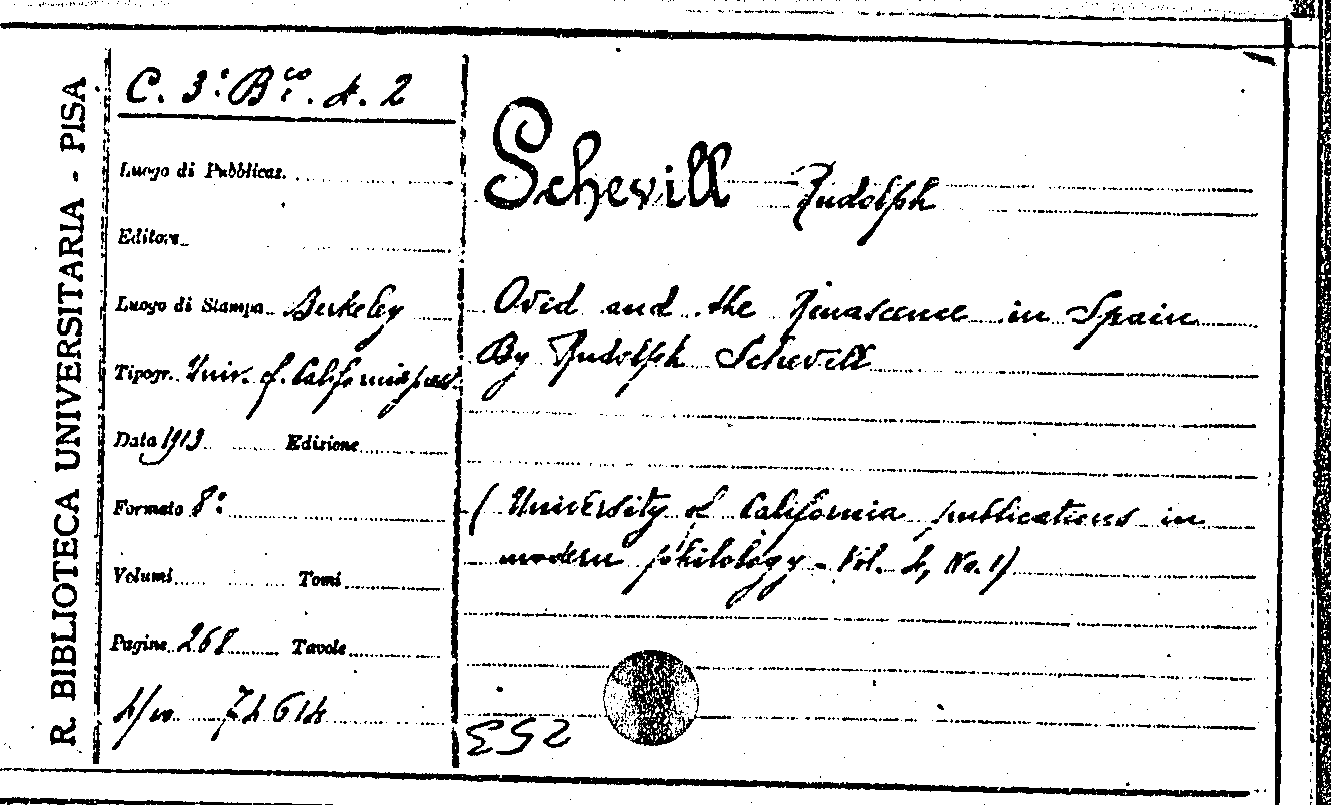 R. BIBLIOTECA UNIVERSITARIA - PISA
C. 3: B.co. 4. 2
Luogo di Pubblicaz.
Editore
Luogo di Stampa Berkeley
Tipogr. Univ. of California press
Data 1913 Edizione
Formato 8°
Volumi Tomi
Pagine 268 Tavole
Schevill Rudolph
Ovid and the Renascence in Spain
By Rudolph Schevill
(University of California publications in
modern philology - Vol. 4, No. 1)
253